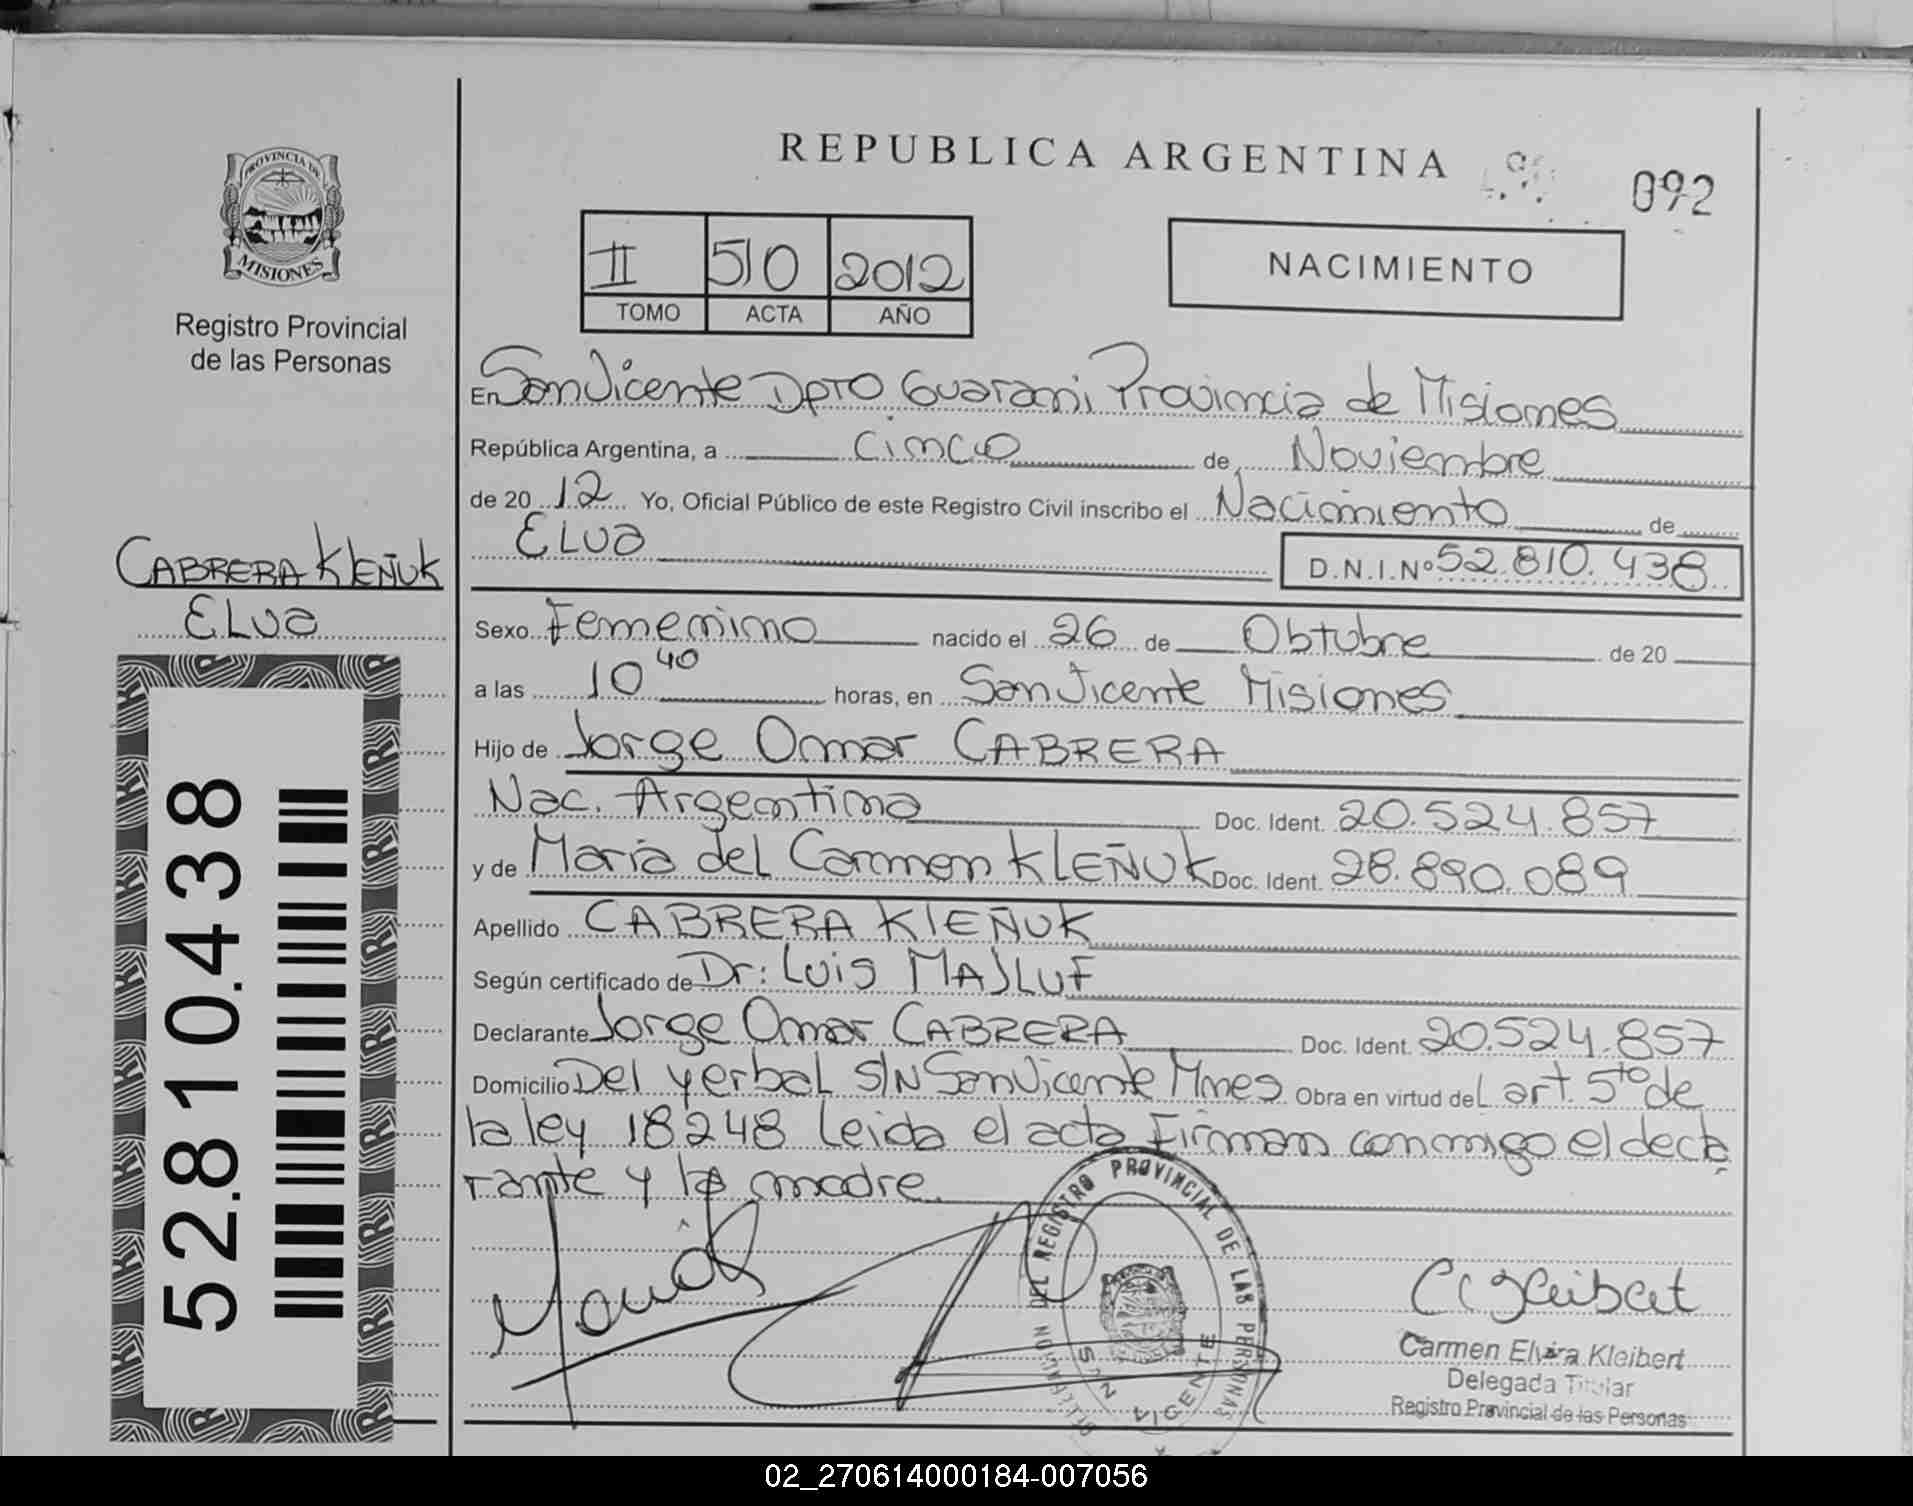 REPUBLICA ARGENTINA
092
PROVINCIA DE
MISIONES
Registro Provincial
de las Personas
II 510 2012
TOMO ACTA AÑO
NACIMIENTO
En San Vicente Dpto Guarani Provincia de Misiones
República Argentina, a Cinco de Noviembre
de 20 12 Yo, Oficial Público de este Registro Civil inscribo el Nacimiento de
ELUA
D.N.I.Nº 52.810.438
CABRERA KLEÑUK
ELUA
Sexo Femenino nacido el 26 de Obtubre de 20
a las 10 40 horas, en San Vicente Misiones
Hijo de Jorge Omar CABRERA
Nac. Argentina Doc. Ident. 20.524.857
y de Maria del Carmen KLEÑUK Doc. Ident. 28.890.089
Apellido CABRERA KLEÑUK
Según certificado de Dr: Luis MASLUF
Declarante Jorge Omar CABRERA Doc. Ident. 20.524.857
Domicilio Del yerbal S/N San Vicente Mnes Obra en virtud del art. 5to de
la ley 18248 Leida el acta Firman conmigo el decla
rante y la madre.
52.810.438
DEL REGISTRO PROVINCIAL DE LAS PERSONAS
SAN VICENTE
Carmen Elvira Kleibert
Delegada Titular
Registro Provincial de las Personas
02_270614000184-007056